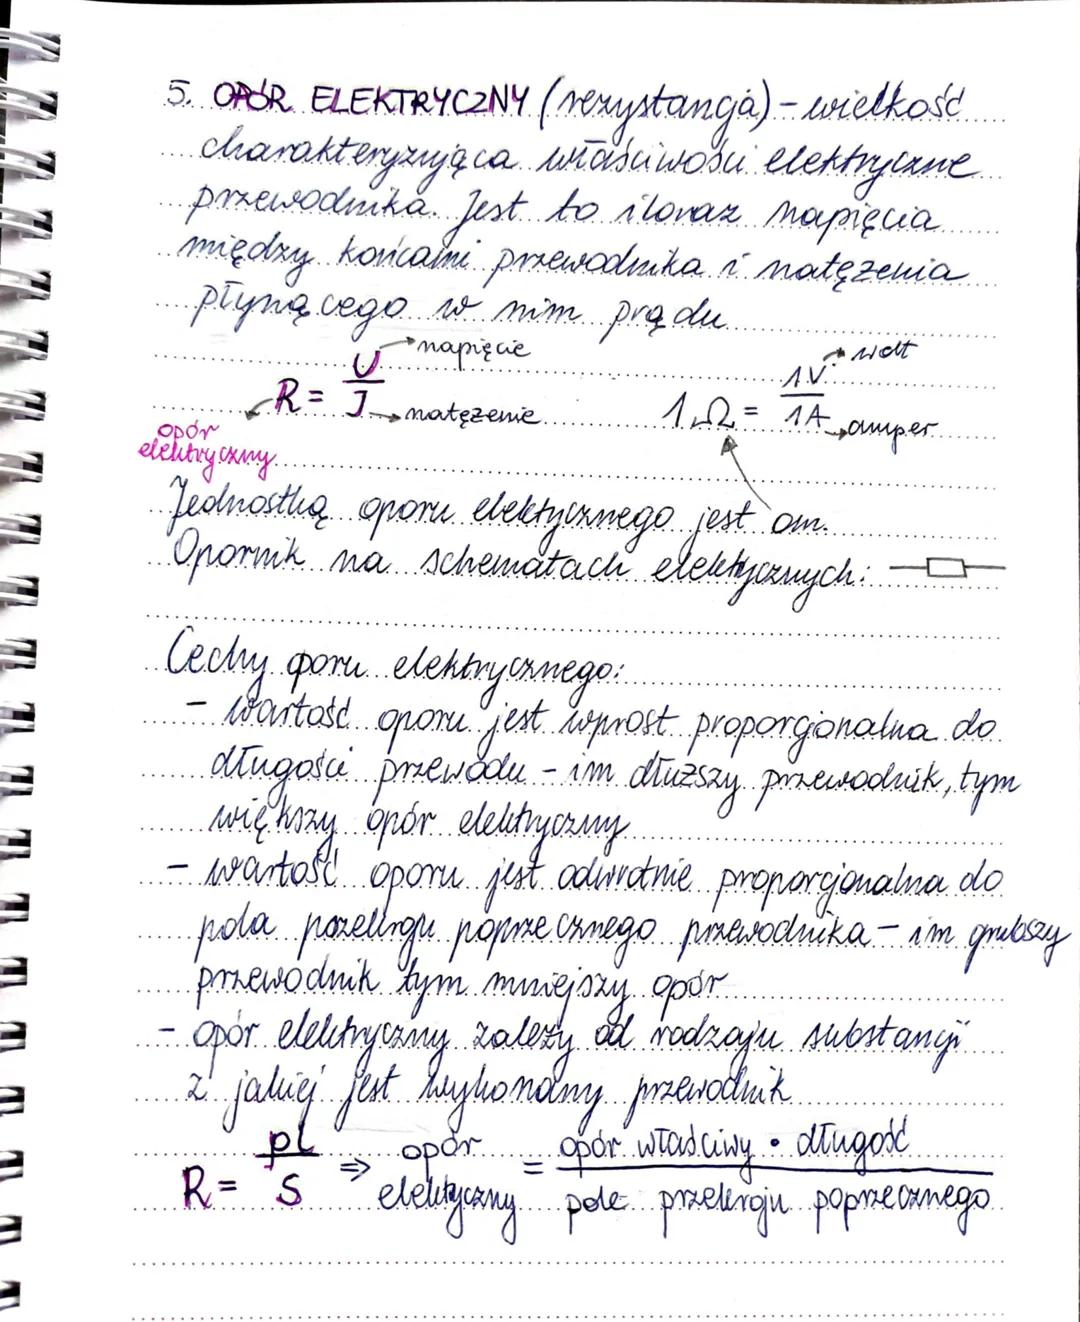 5. OPÓR ELEKTRYCZNY (rezystancja) - wielkość
charakteryzująca właściwości elektryczne
przewodnika. Jest to iloraz napięcia
między końcami przewodnika i natężenia
płynącego w nim prądu
napięcie
wolt
R = U/I
natężenie
1Ω = 1V/1A
amper
opór
elektryczny
Jednostką oporu elektrycznego jest om.
Opornik na schematach elektrycznych:
Cechy oporu elektrycznego:
- wartość oporu jest wprost proporcjonalna do
długości przewodu - im dłuższy przewodnik, tym
większy opór elektryczny
- wartość oporu jest odwrotnie proporcjonalna do
pola przekroju poprzecznego przewodnika - im grubszy
przewodnik tym mniejszy opór
- opór elektryczny zależy od rodzaju substancji
z jakiej jest wykonany przewodnik
R = ρl/S => opór elektryczny = opór właściwy • długość / pole przekroju poprzecznego